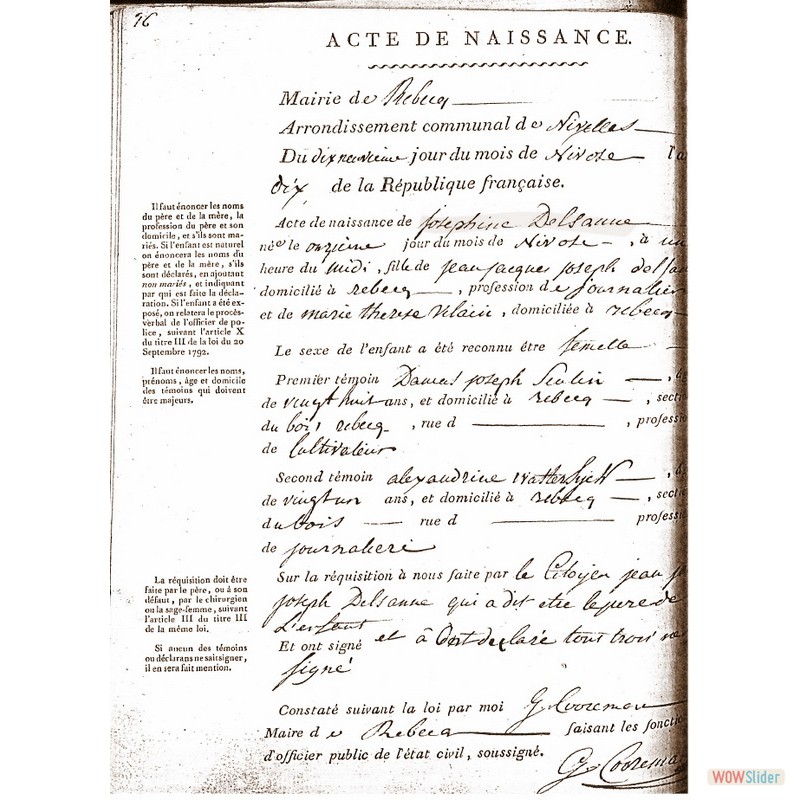 76
ACTE DE NAISSANCE.
Mairie de Rebecq
Arrondissement communal de Nivelles
Du dixneuvieme jour du mois de Nivose l'a
dix de la République française.
Il faut énoncer les noms
du père et de la mère, la
profession du père et son
domicile, et s'ils sont ma-
riés. Si l'enfant est naturel
on énoncera les noms du
père et de la mère, s'ils
sont déclarés, en ajoutant
non mariés, et indiquant
par qui est faite la décla-
ration. Si l'enfant a été ex-
posé, on relatera le procès-
verbal de l'officier de po-
lice, suivant l'article X
du titre III de la loi du 20
Septembre 1792.
Acte de naissance de Josephine Delsanne
née le onzieme jour du mois de Nivose, à un
heure du midi, fille de jean jacque joseph delsan
domicilié à rebecq, profession de journalier
et de marie therese vilain, domiciliée à rebecq
Le sexe de l'enfant a été reconnu être femelle
Il faut énoncer les noms,
prénoms, âge et domicile
des témoins qui doivent
être majeurs.
Premier témoin joseph
de vingt huit ans, et domicilié à rebecq, secti
du bois rebecq, rue d , professi
de Cultivateur
Second témoin alexandrine
de vingt un ans, et domicilié à rebecq, secti
du bois rue d professi
de journaliere
La réquisition doit être
faite par le père, ou à son
défaut, par le chirurgien
ou la sage-femme, suivant
l'article III du titre III
de la même loi.
Sur la réquisition à nous faite par le Citoyen jean j
joseph Delsanne qui a dit etre le pere de
L'enfant
Et ont signé et à declaré tous trois
signé
Si aucun des témoins
ou déclarans ne sait signer,
il en sera fait mention.
Constaté suivant la loi par moi G. Cooreman
Maire de Rebecq faisant les foncti
d'officier public de l'état civil, soussigné.
G. Cooreman
WOWSlider